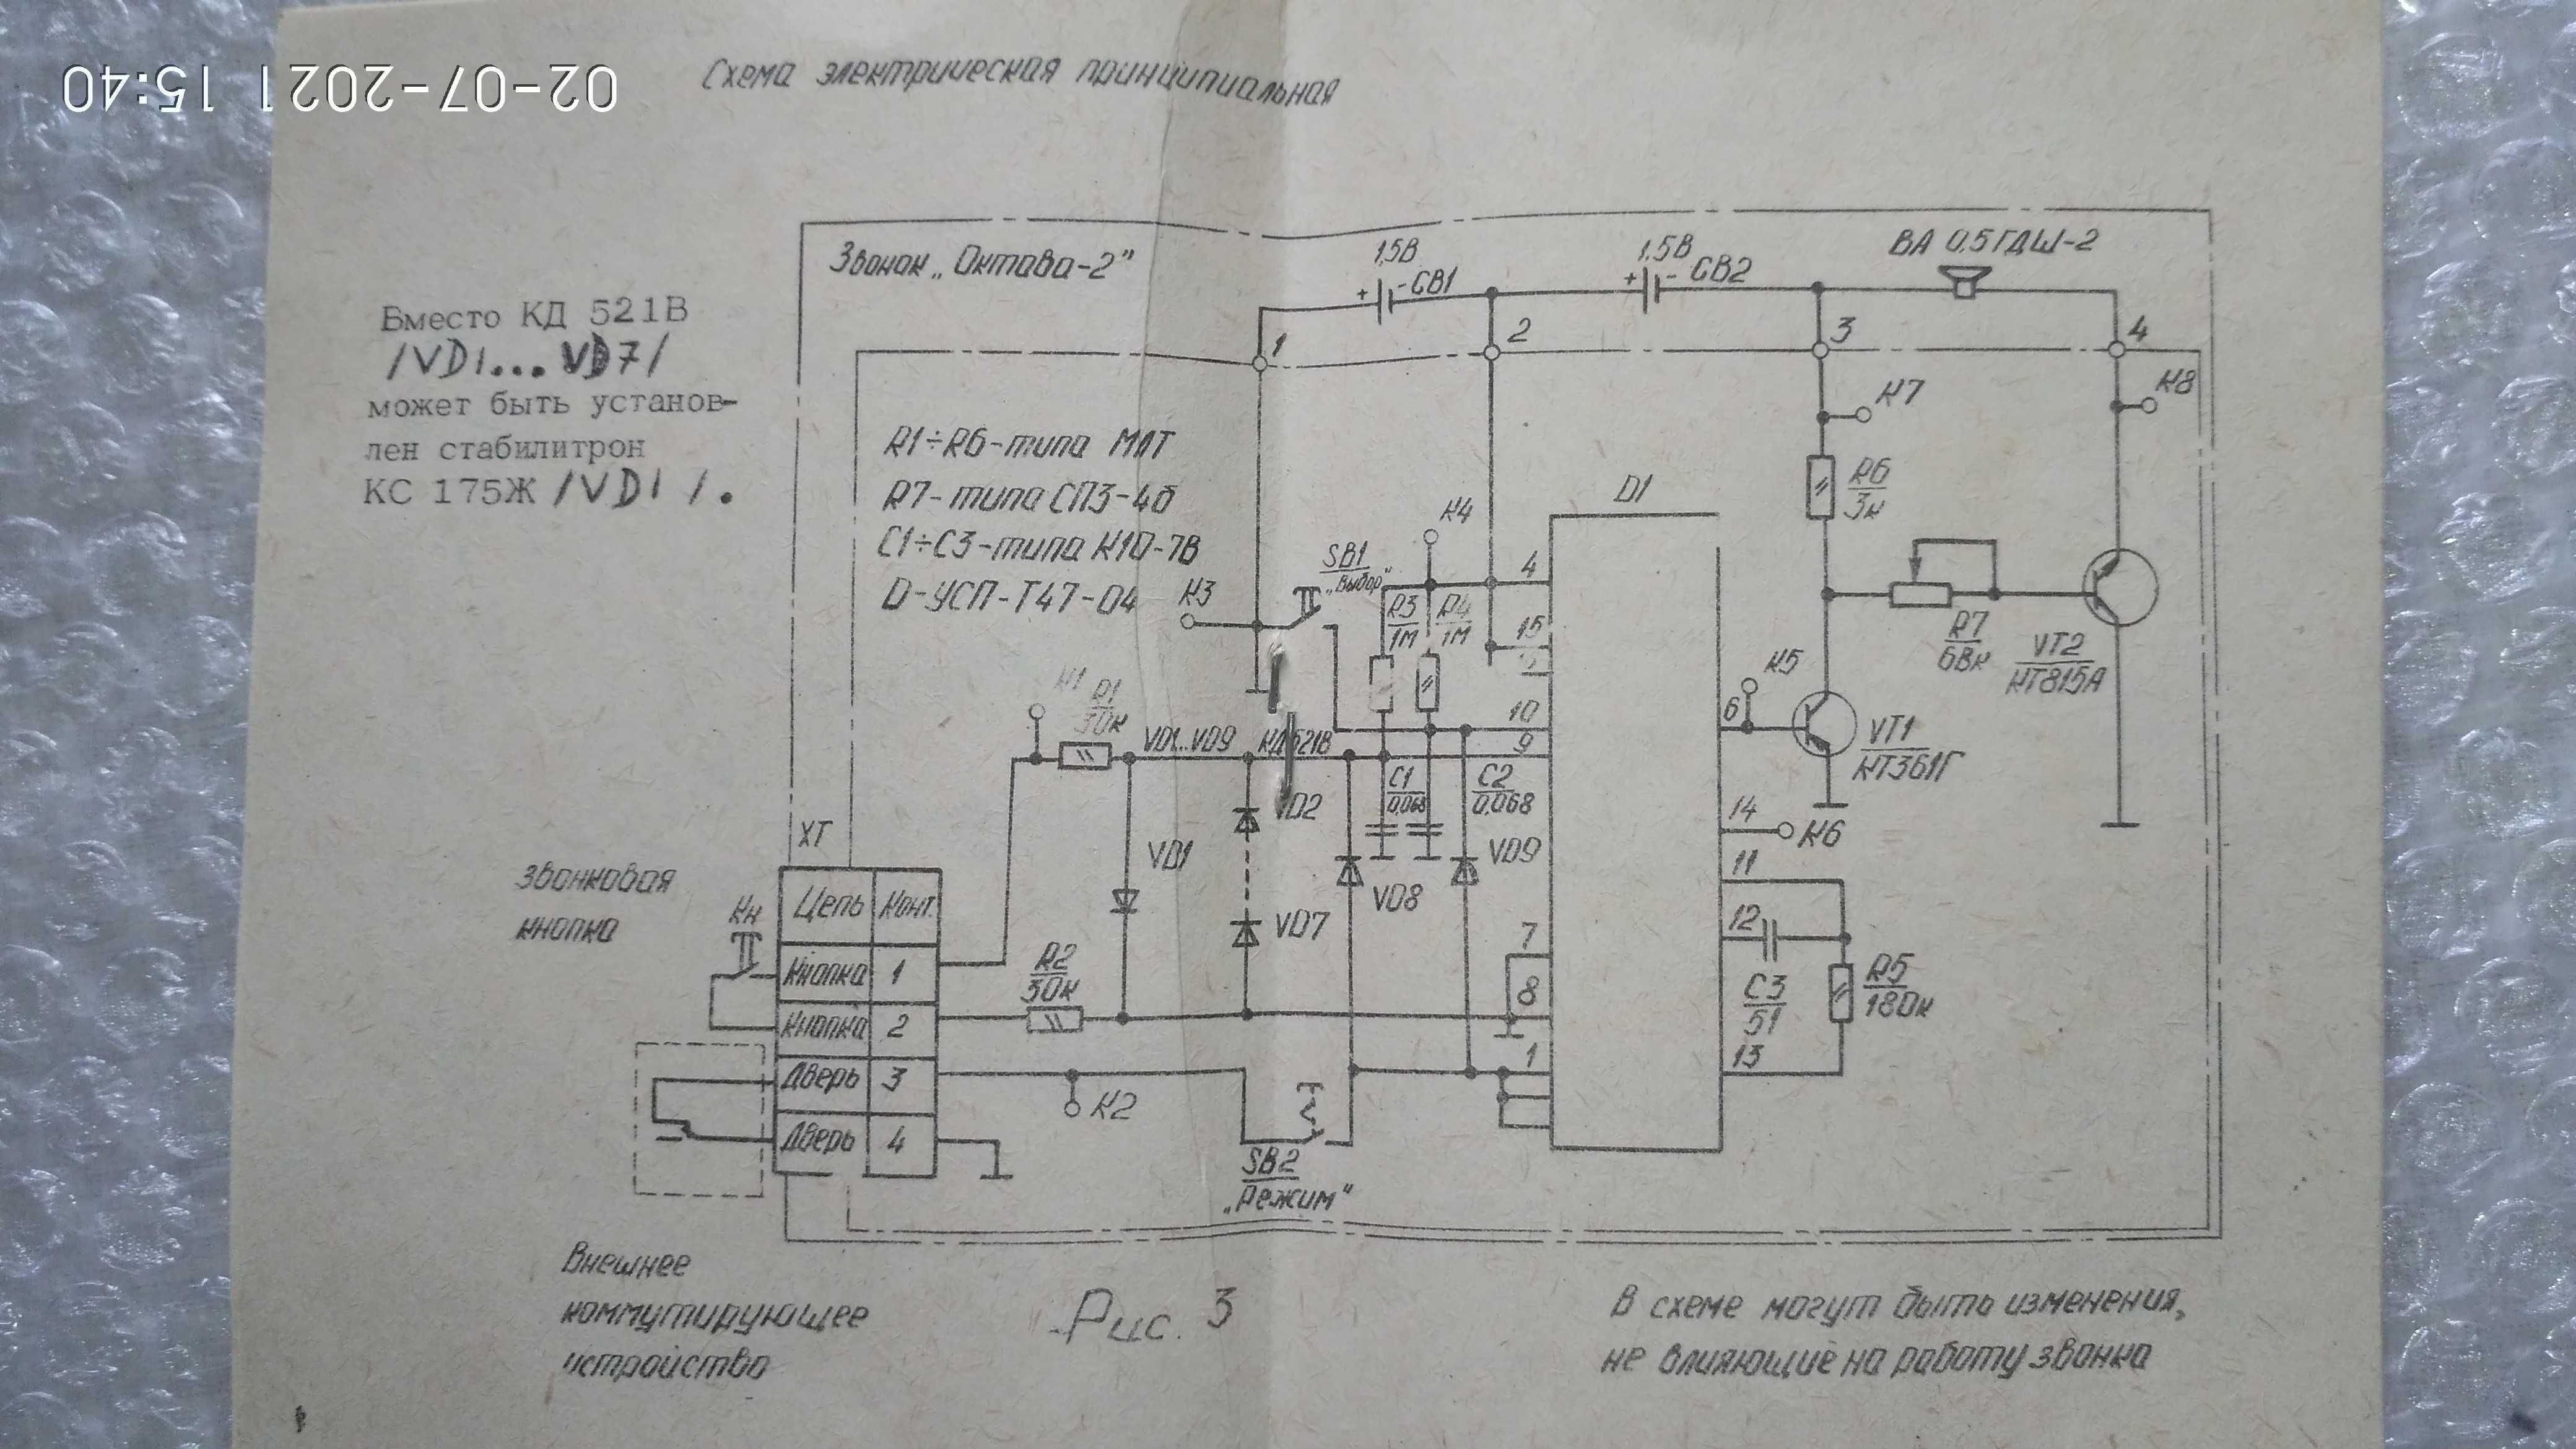 02-07-2021 15:40
Схема электрическая принципиальная
Звонок „Октава-2”
Вместо КД 521В
/VD1... VD7/
может быть установ-
лен стабилитрон
КС 175Ж /VD1 /.
1,5В
+ - GB1
1,5В
+ - GB2
ВА 0,5ГДШ-2
1
2
3
4
R1÷R6-типа МЛТ
R7- типа СП3-4б
C1÷C3-типа К10-7В
D-УСП-Т47-04
К7
К8
R6
3к
D1
К4
SB1
„Выбор”
К3
R3
1М
R4
1М
4
15
10
9
R7
68к
VT2
КТ815А
К5
6
VT1
КТ361Г
К1
R1
30к
VD1...VD9 КД521В
VD2
C1
0,068
C2
0,068
VD1
VD8
VD9
VD7
14
К6
11
12
C3
51
R5
180к
13
7
8
1
XT
звонковая
кнопка
Кн
Цепь Конт.
Кнопка 1
Кнопка 2
Дверь 3
Дверь 4
R2
30к
К2
SB2
„Режим”
Внешнее
коммутирующее
устройство
Рис. 3
В схеме могут быть изменения,
не влияющие на работу звонка